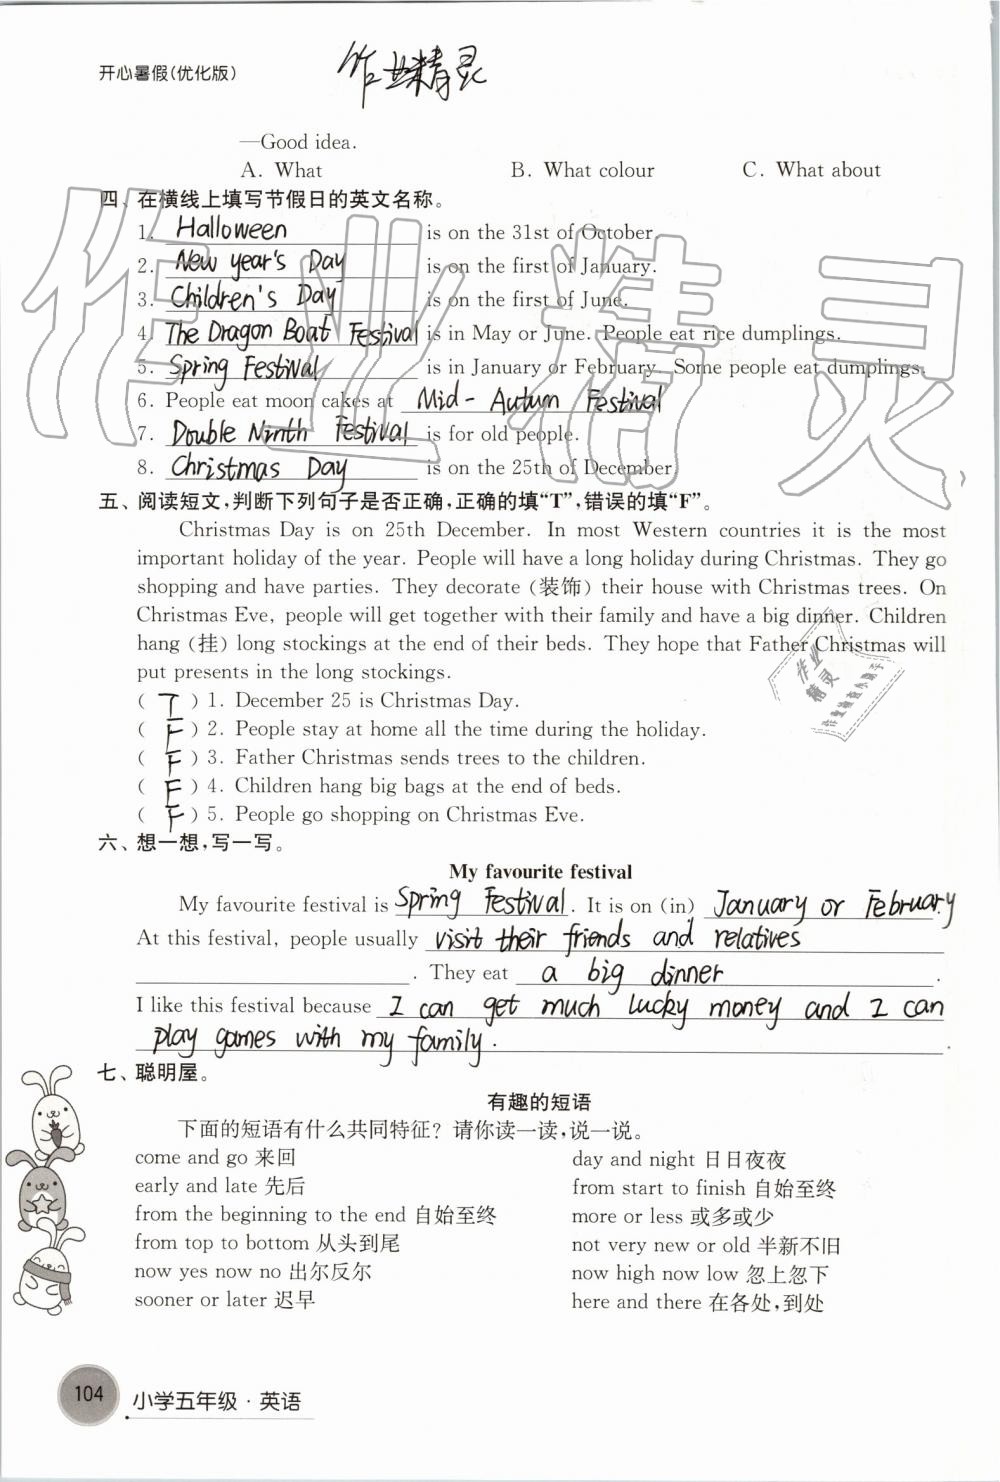 开心暑假(优化版)
作业精灵
—Good idea.
A. What B. What colour C. What about
四、在横线上填写节假日的英文名称。
1. Halloween is on the 31st of October.
2. New year's Day is on the first of January.
3. Children's Day is on the first of June.
4. The Dragon Boat Festival is in May or June. People eat rice dumplings.
5. Spring Festival is in January or February. Some people eat dumplings.
6. People eat moon cakes at Mid-Autumn Festival
7. Double Ninth Festival is for old people.
8. Christmas Day is on the 25th of December.
五、阅读短文,判断下列句子是否正确,正确的填“T”,错误的填“F”。
Christmas Day is on 25th December. In most Western countries it is the most
important holiday of the year. People will have a long holiday during Christmas. They go
shopping and have parties. They decorate (装饰) their house with Christmas trees. On
Christmas Eve, people will get together with their family and have a big dinner. Children
hang (挂) long stockings at the end of their beds. They hope that Father Christmas will
put presents in the long stockings.
( T ) 1. December 25 is Christmas Day.
( F ) 2. People stay at home all the time during the holiday.
( F ) 3. Father Christmas sends trees to the children.
( F ) 4. Children hang big bags at the end of beds.
( F ) 5. People go shopping on Christmas Eve.
六、想一想,写一写。
My favourite festival
My favourite festival is Spring Festival. It is on (in) January or February.
At this festival, people usually visit their friends and relatives
. They eat a big dinner.
I like this festival because I can get much lucky money and I can
play games with my family.
七、聪明屋。
有趣的短语
下面的短语有什么共同特征?请你读一读,说一说。
come and go 来回 day and night 日日夜夜
early and late 先后 from start to finish 自始至终
from the beginning to the end 自始至终 more or less 或多或少
from top to bottom 从头到尾 not very new or old 半新不旧
now yes now no 出尔反尔 now high now low 忽上忽下
sooner or later 迟早 here and there 在各处,到处
104 小学五年级·英语
作业精灵
作业
精灵